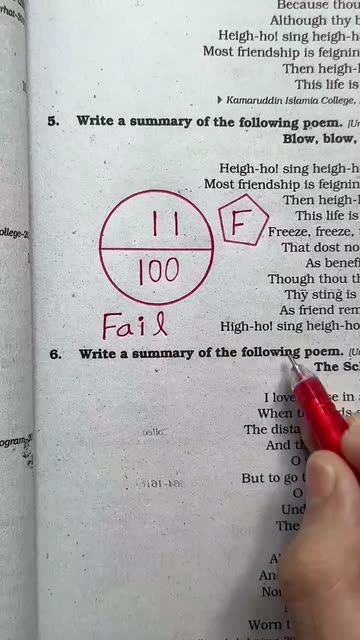 Because thou
Although thy b
Heigh-ho! sing heigh-h
Most friendship is feignin
Then heigh-
This life is
Kamaruddin Islamia College,
5. Write a summary of the following poem.
Blow, blow,
Heigh-ho! sing heigh-h
Most friendship is feignin
Then heigh-l
This life is
Freeze, freeze,
That dost no
As benefi
Though thou th
Thy sting is
As friend rem
High-ho! sing heigh-ho
11
100
F
Fail
6. Write a summary of the following poem.
The Sc
I love
in
When t
The dista
And th
O
But to go t
O
Und
The
A
An
No
Worn t